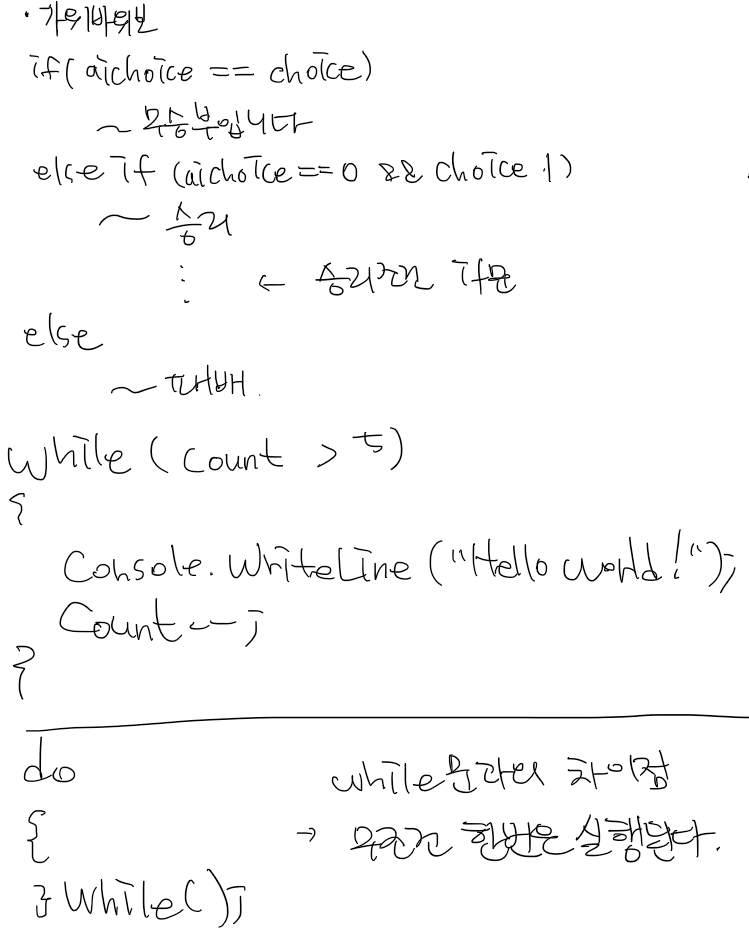 · 가위바위보
if( aichoice == choice)
~ 무승부입니다
else if (aichoice==0 && choice 1)
~ 승리
⋮ ← 승리조건 if문
else
~ 패배.
while (count > 5)
{
Console.WriteLine ("Hello world!");
Count--;
}
do while문과의 차이점
{ → 무조건 한번은 실행된다.
} while();